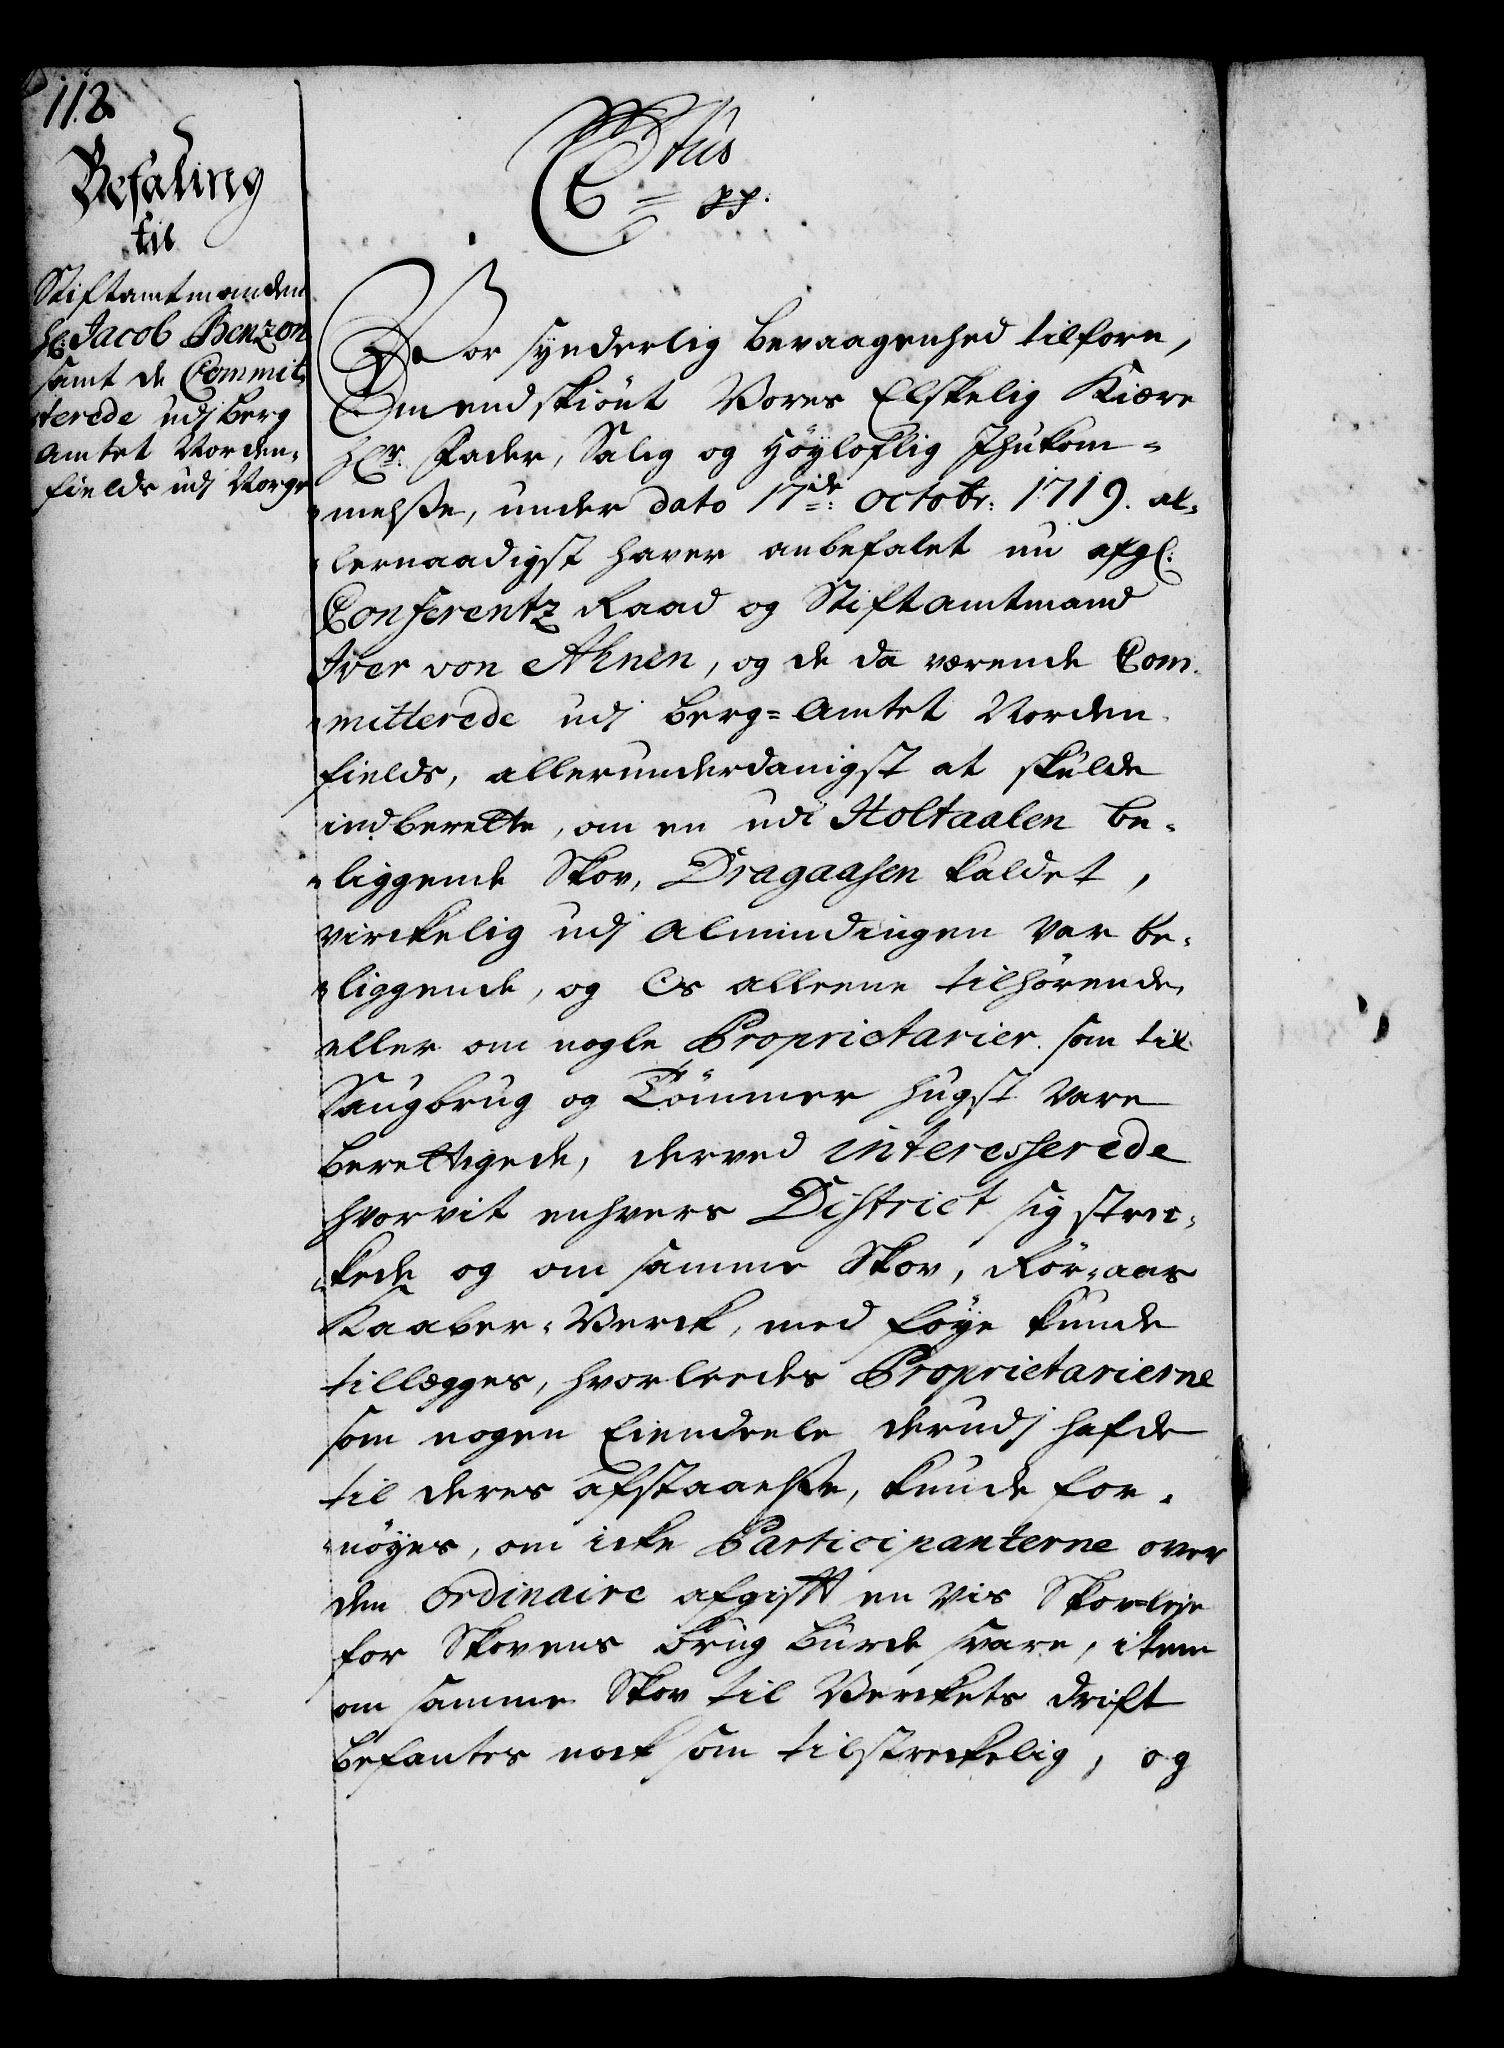 118
Befaling
til
Stiftamtmanden
Hr: Jacob Benzon
samt de Commit,
terede udj berg
Amtet Norden,
fields udj Norge
C 6tus
pp.
Vor synderlig bevaagenhed tilforn,
Omendskiönt Vores Elskelig Kiære
Hr: Fader, Salig og Höyloflig Ihukom=
melsse, under dato 17de: octobr: 1719. al,
lernaadigst haver anbefalet nu afg:
Conferentz Raad og Stiftamtmand
Iver von Ahnen, og de da værende Com,
mitterede udj berg=Amtet Norden,
fields, allerunderdanigst at skulde
indberette, om en udi Holtaalen be,
liggende Skov, Dragaasen kaldet,
virkelig udj Almindingen var be,
liggende, og Os alleene tilhörende,
eller om nogle Proprietarier som til
Saugbrug og Tömmer hugst vare
berettigede, derved interesserede
hvorvit enhvers District sig strec,
kede og om samme Skov, Rör=aas
Kaaber=Verck, med föye kunde
tillægges, hvorleedes Proprietarierne
som nogen Eiendeele derudj hafde
til deres afstaaelsse, kunde for,
nöyes, om icke Participanterne over
den ordinaire afgifft en vis Skovleje
for Skovens brug burde svare, item
om samme Skov til Verckets drift
befantes nock som tilstreckelig, og